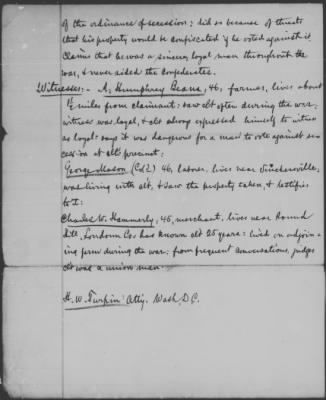 of the ordinance of secession; did so because of threats
that his property would be confiscated if he voted against it.
Claims that he was a sincere, loyal man throughout the
war, & never aided the Confederates.
Witnesses:- A. Humphrey Beans, 46, farmer, lives about
miles from claimant: saw clt often during the war;
witness was loyal, & clt always expressed himself to witness
as loyal: says it was dangerous for a man to vote against se-
cession at clt's precinct;
George Mason (Col'd) 46, laborer, lives near
was living with clt, & saw the property taken, & testifies
to I:
Charles W. Hammerly, 45, merchant, lives near Round
Hill, Loudoun Co: has known clt 25 years: lived on adjoin-
ing farm during the war: from frequent conversations, judges
clt was a union man.
H. W. Turpin Atty. Wash, D.C.